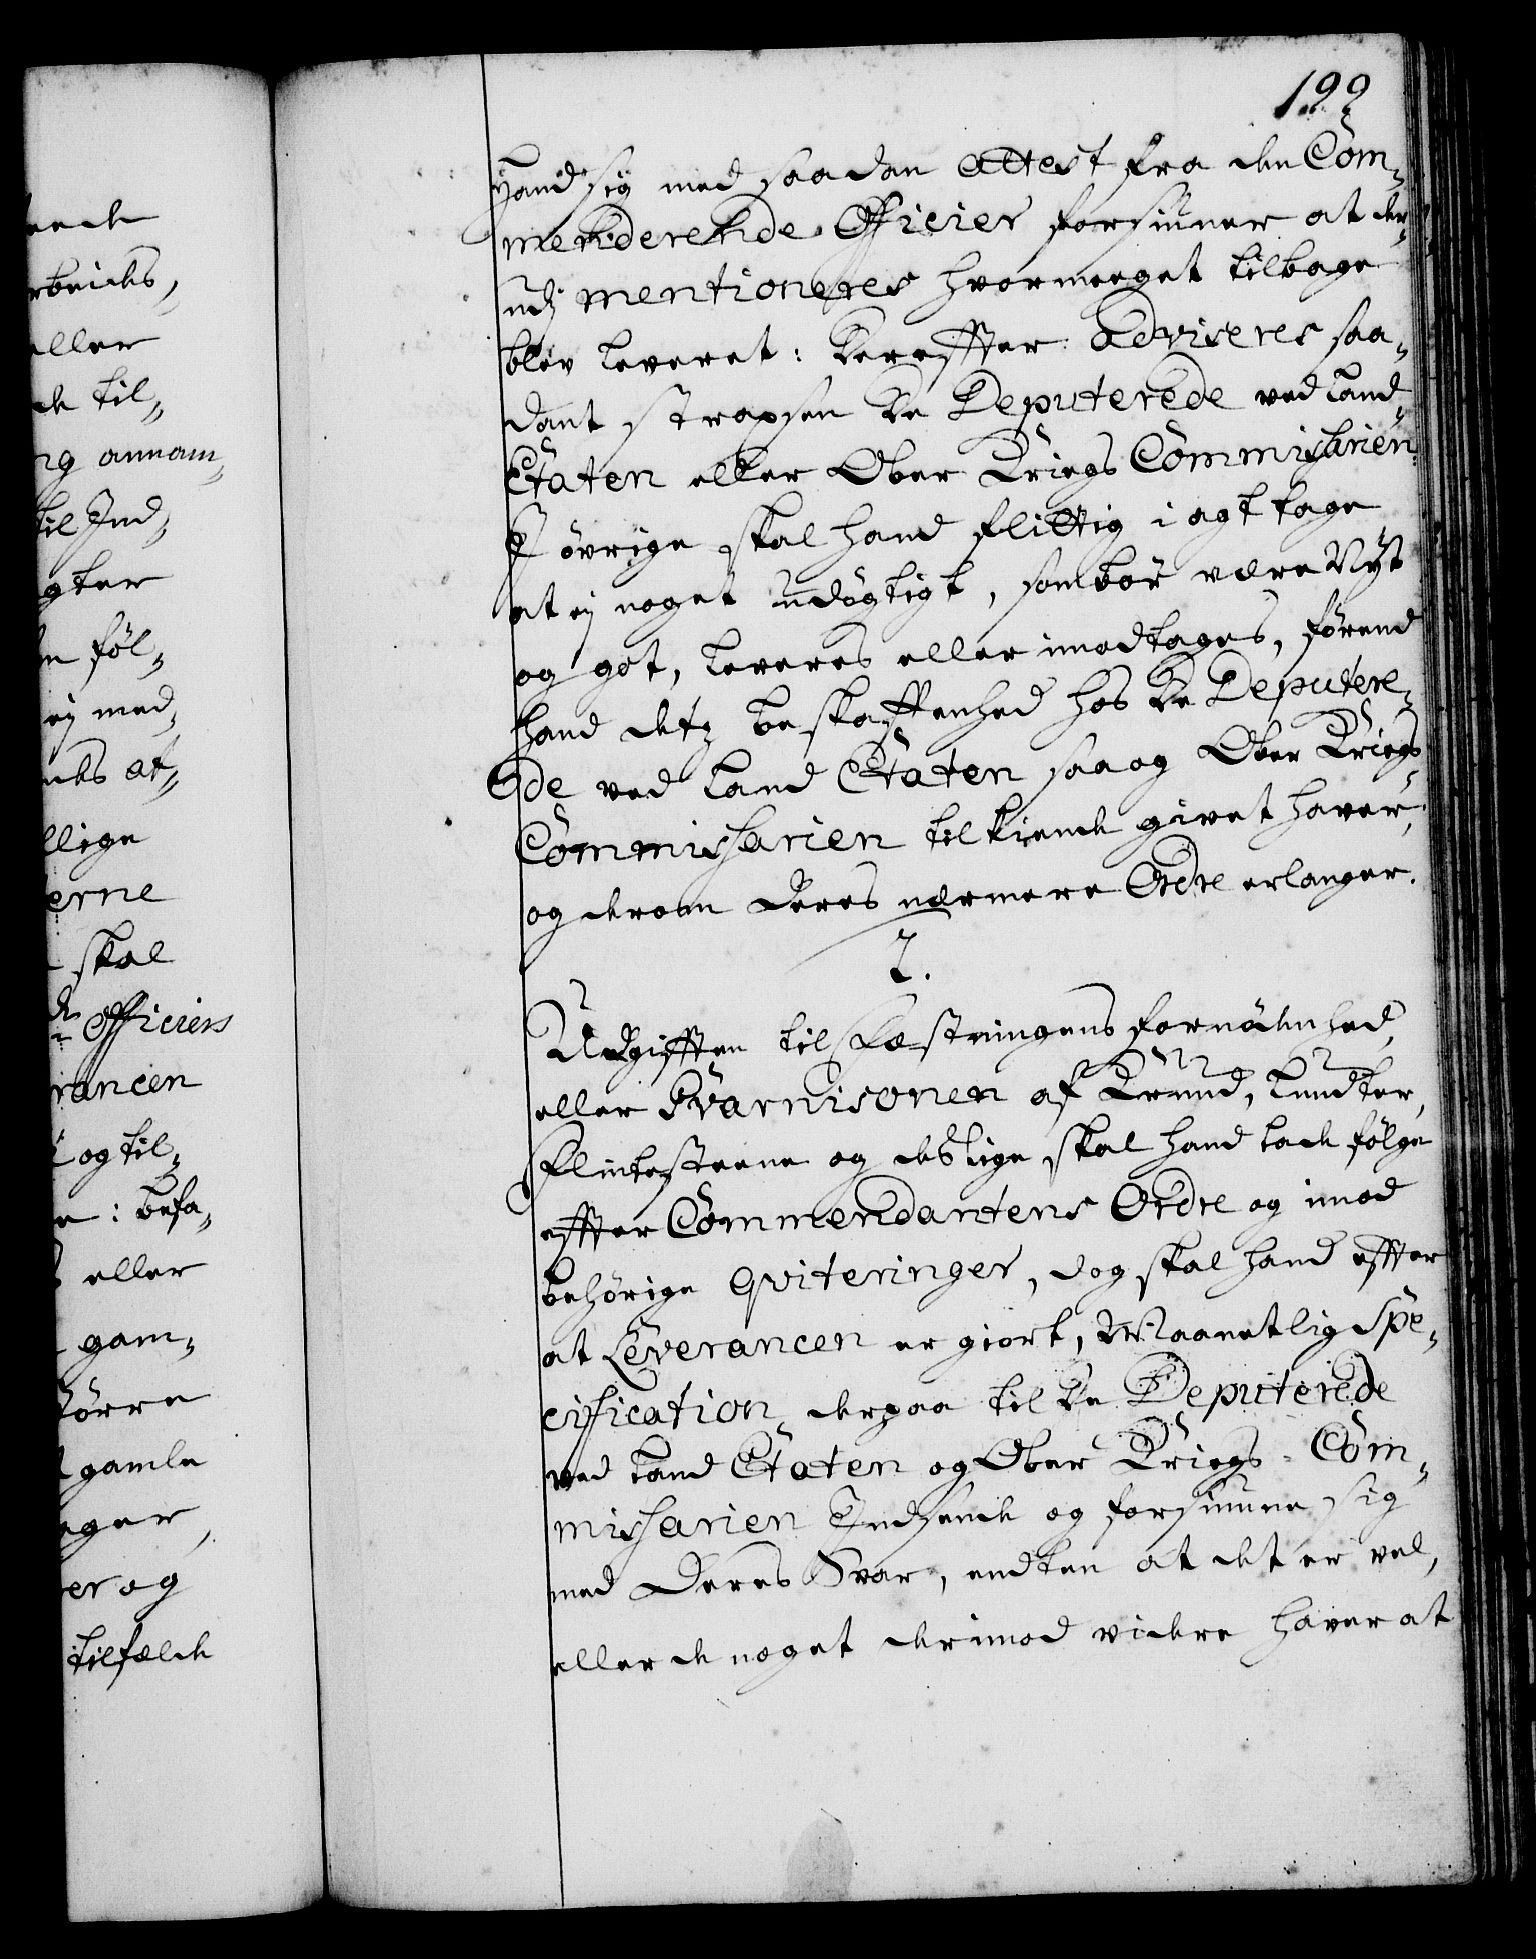 199
hand sig med saadan Attest fra den Com-
menderende Officier forsiuner at der-
udj mentioneres hvormeeget tilbage
blev leveret: Derefter adviseres saa-
dant strapsen De Deputerede ved Land-
Etaten eller Ober Kriegs Commissarien.
J övrige skal hand flittig i agt tage
at ej noget udögtigt, som bör være Nyt
og got, leveres eller imodtages, förend
hand detz beskaffenhed hos De Deputere-
de ved Land Etaten saa og Ober Kriegs-
Commissarien tilkiende givet haver,
og derom Deres nærmere Ordre erlanger.
7.
Udgifften til Fæstningens fornödenhed,
eller Gvarnisonen af Krud, Lundter,
Flintesteene og deslige skal hand lade fölge
effter Commendantens Ordre og imod
behörige qviteringer, dog skal hand effter
at Leverancen er giort, Maanetlig Spe-
cification derpaa til De Deputerede
ved Land Etaten og Ober Kriegs-Com-
missarien Indsende og forsiune sig
med Deres Svar, endten at det er vel,
eller de noget derimod videre haver at
eller
de til-
ng annam-
til Ind-
gter
föl-
ej med-
at-
llige
erne
skal
Officiers
rancen
og til-
: befa-
eller
gam-
större
gamle
er og
tilfælde